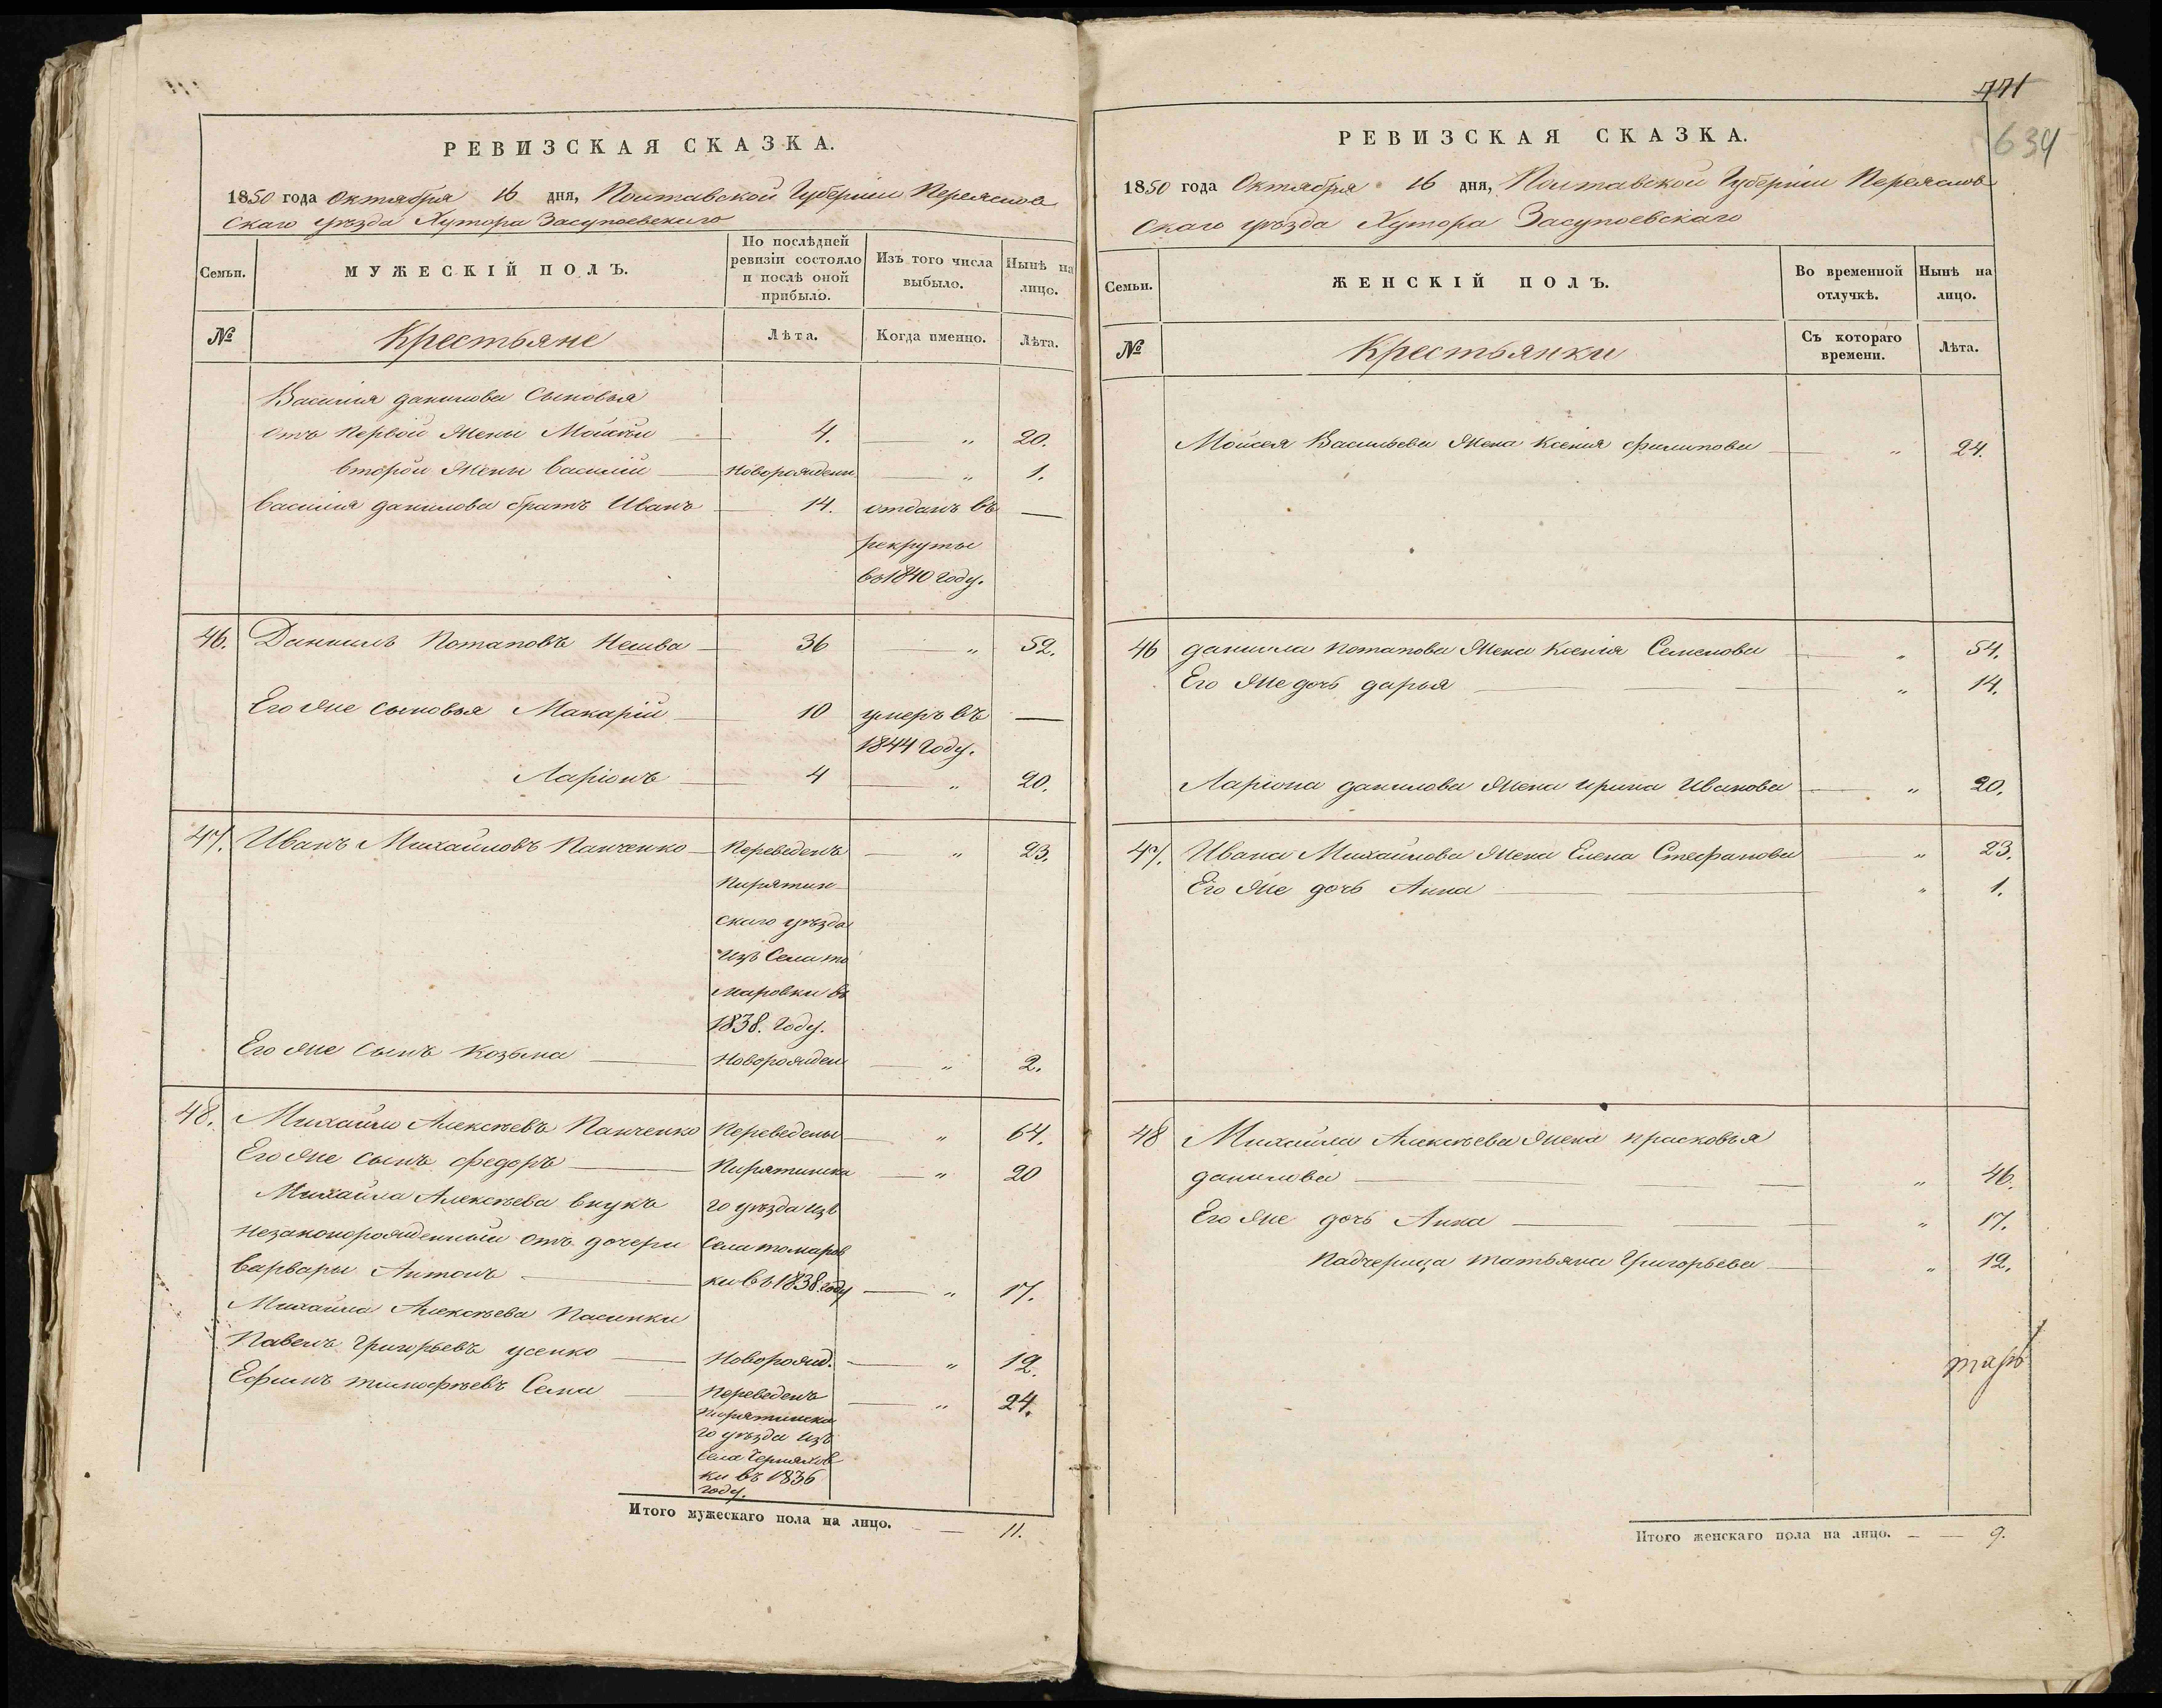 РЕВИЗСКАЯ СКАЗКА.
1850 года Октября 16 дня, Полтавской Губерніи Переяслов
скаго уѣзда Хутора Засупоевскаго
Семьи.
МУЖЕСКІЙ ПОЛЪ.
По послѣдней ревизіи состояло и послѣ оной прибыло.
Изъ того числа выбыло.
Нынѣ на лицо.
№
Крестьяне
Лѣта.
Когда именно.
Лѣта.
Василия данилова Сыновья
отъ Первой жены Мойсѣй — 4. — „ 20.
второй жены Василий — Новорожденн. — „ 1.
Василия данилова братъ Иванъ — 14. отданъ въ —
рекруты
въ 1840 году.
46. Даниилъ Потаповъ Нешва — 36 — „ 52.
Его же сыновья Макарій — 10 умеръ въ —
1844 году.
Ларіонъ — 4 — „ 20.
47. Иванъ Михайловъ Панченко — Переведенъ — „ 23.
Пирятин
скаго уѣзда
изъ Села то
маровки въ
1838. году.
Его же сынъ Козьма — Новорожден — „ 2.
48. Михайло Алексѣевъ Панченко Переведены — „ 64.
Его же сынъ федоръ — Пирятинска — „ 20
Михайла Алексѣева внукъ го уѣзда изъ
незаконорожденный отъ дочери Села томаров
Варвары Антонъ — ки въ 1838. году — „ 17.
Михайла Алексѣева Пасынки
Павелъ Григорьевъ усенко — Новорожд. — „ 12.
Ефимъ тимофѣевъ — Переведенъ — „ 24.
Пирятинска
го уѣзда изъ
Села Черняхов
ки въ 1836
году.
Итого мужескаго пола на лицо. — 11.
771
634
РЕВИЗСКАЯ СКАЗКА.
1850 года Октября 16 дня, Полтавской Губерніи Переяслов
скаго уѣзда Хутора Засупоевскаго
Семьи.
ЖЕНСКІЙ ПОЛЪ.
Во временной отлучкѣ.
Нынѣ на лицо.
№
Крестьянки
Съ котораго времени.
Лѣта.
Мойсея Васильева жена Ксения филипова — „ 24.
46 данила потапова жена Ксенія Семенова — „ 54.
Его же дочь дарья — „ 14.
Ларіона данилова жена ирина Иванова — „ 20.
47. Ивана Михайлова жена Елена Стефанова — „ 23.
Его же дочь Анна — „ 1.
48 Михайла Алексѣева жена прасковья
данилова — „ 46.
Его же дочь Анна — „ 17.
Падчерица татьяна Григорьева — „ 12.
Итого женскаго пола на лицо. — — 9.